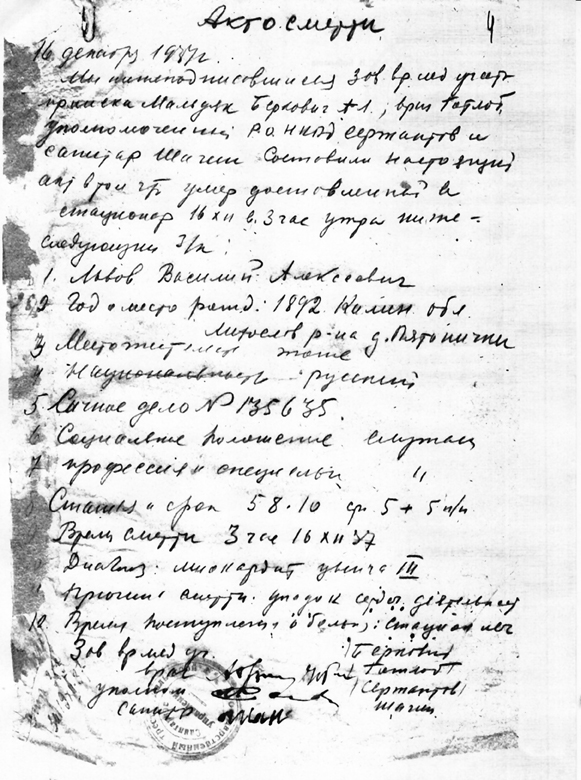 Акт о смерти 4
16 декабря 1937г.
Мы нижеподписавшиеся Зав врмед участ
прииска Мальдяк Беркович А.Л., врач Готлоб,
уполномоченный РО НКВД Сержантов и
санитар Шагин Составили настоящий
акт в том что умер доставленный в
стационар 16 XII в 3 час утра ниже-
следующий З/к
1. Львов Василий Алексеевич
2 Год и место рожд: 1892 Калин. обл
р-на д. Пятонички
3 Местожит тоже
4 Национальность русский
5 Личное дело № 135635.
6 Социальное положение служащ
7 профессия и специальн "
Статья и срок 58.10 5 + 5 п/п
Время смерти 3 час 16 XII 37
Диагноз: миокардит цынга III
Причина смерти: упадок сердеч. деятельност
12 Время поступления в больн: стационар
Зав врмед уч. /Беркович/
врач Готлоб
уполном /Сержантов/
санитар Шагин